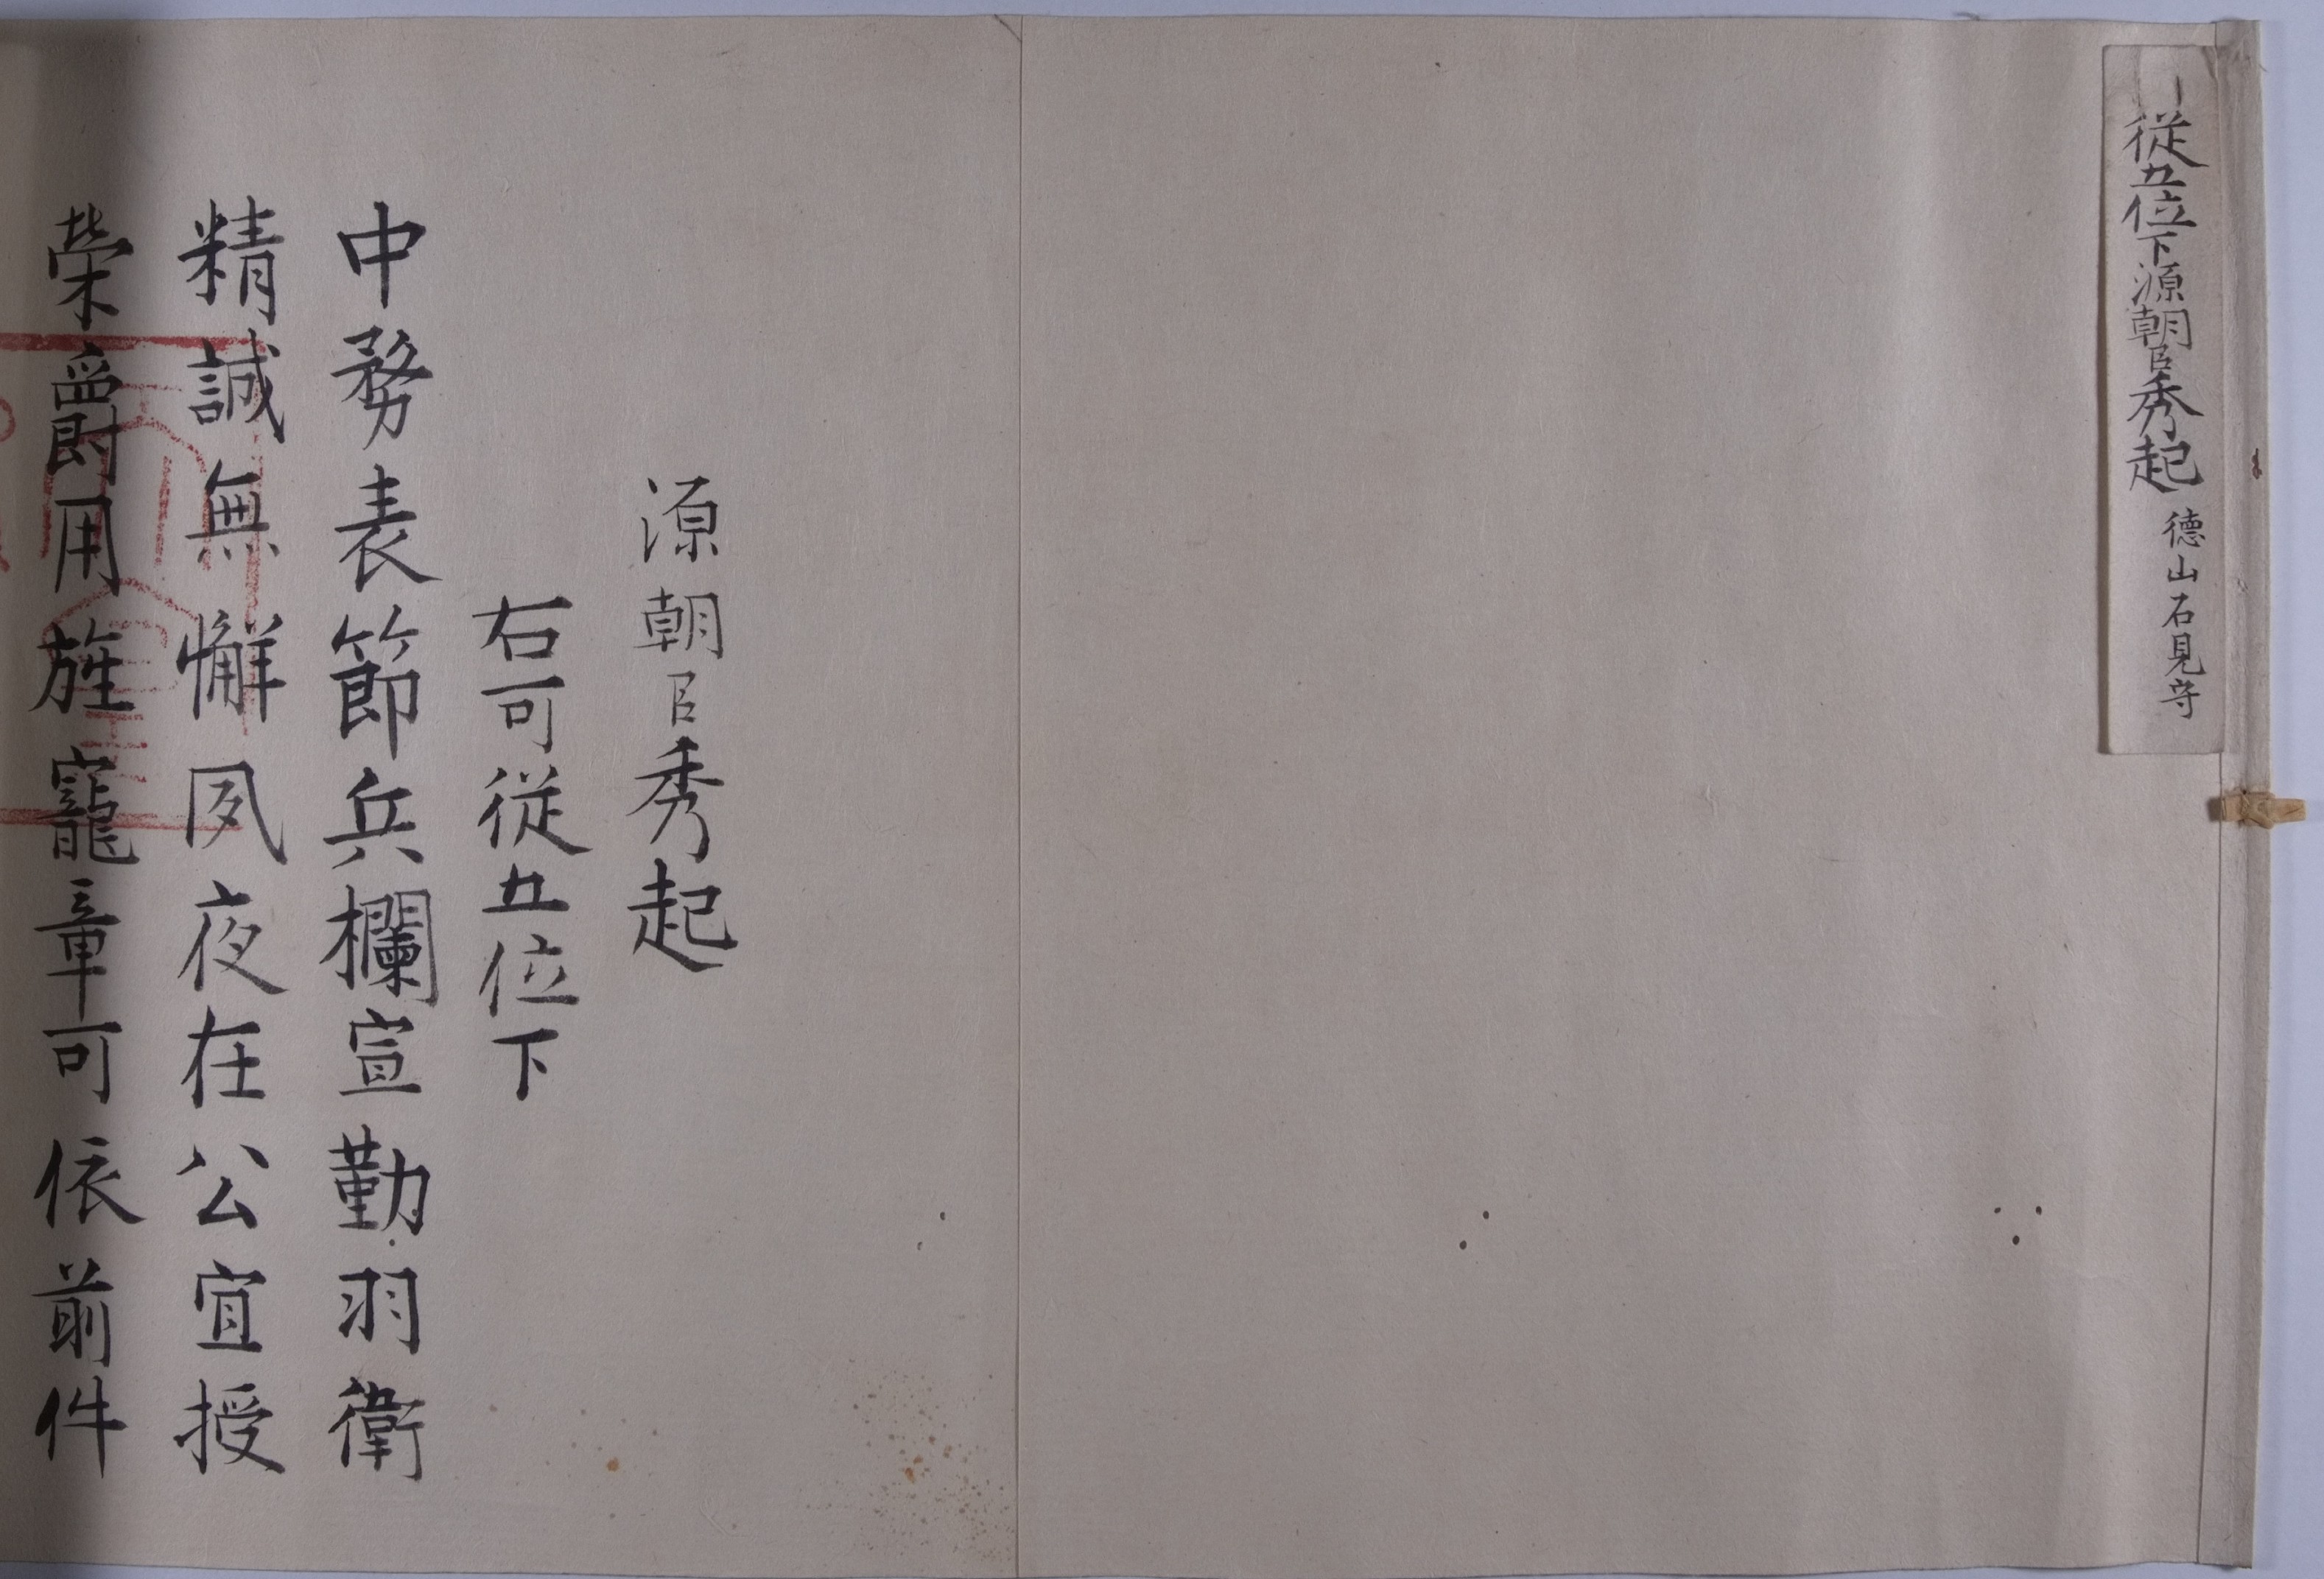 従五位下源朝臣秀起
德山石見守
源朝臣秀起
右可従五位下
中務表節兵欄宣勤羽衛
精誠無懈夙夜在公宜授
榮爵用旌寵章可依前件